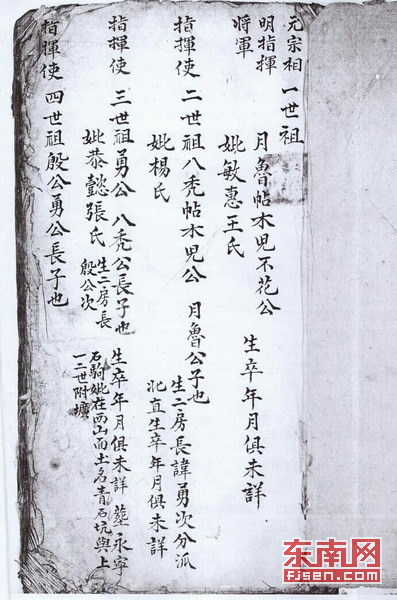 元宗相 一世祖
明指揮 月魯帖木児不花公 生卒年月俱未詳
将軍 妣敏惠王氏
指揮使 二世祖八禿帖木児公 月魯公子也
妣楊氏 生二房長諱勇次分派
北直生卒年月俱未詳
指揮使 三世祖勇公 八禿公長子也 生卒年月俱未詳 塟永寧
妣恭懿張氏 生二房長
殷公次
石駒妣在西山面土名青石坑與上
一二世附壙
指揮使 四世祖殷公勇公長子也
东南网
fjsen.com